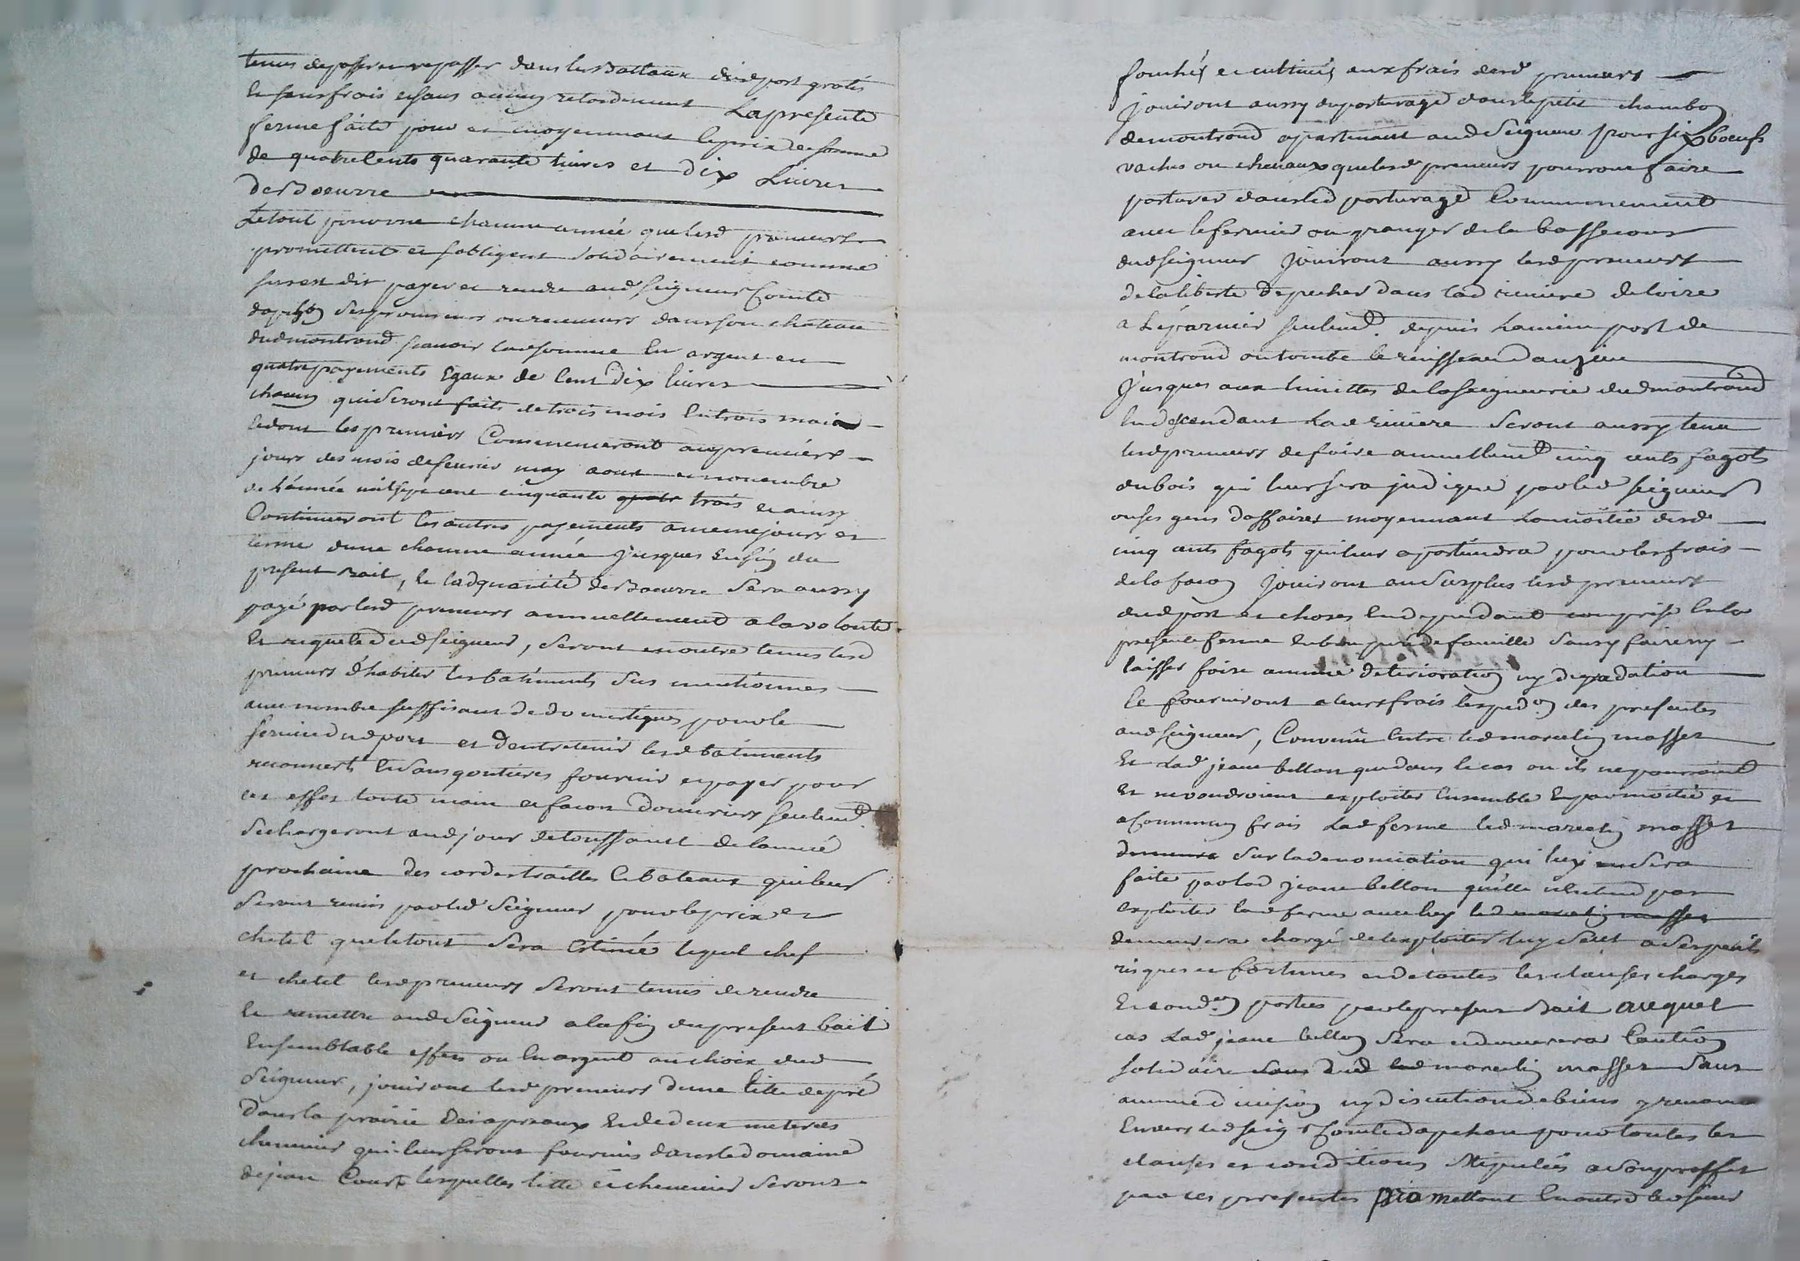 tenus de passer et repasser dans les Battaux dud port gratis
Et sans frais et sans aucun retardement La presente
ferme faite pour et moyennant le prix et somme
de quatre Cents quarante livres et dix Livres
De Boeurre
Le tout pour une chacune année que lesd preneurs
promettent et sobligent solidairement comme
sus est dit payer et rendre aud seigneur Comte
ses ou receveurs dans son chateau
dud montrond scavoir lad somme En argent en
quatre payements Egaux de Cent Dix livres
chacun qui seront faits de trois mois En trois mois
Et dont les premiers Commenceront au premiers
jours des mois de fevrier may aout et novembre
de L'année mil sept cent cinquante quatre trois et ainsy
Continueront les autres payements a meme jours et
terme dune chacune année jusques En fin du
present Bail, Et lad quantité de Boeurre Sera aussy
payé par lesd preneurs annuellement a la volonté
Et requete dud seigneur, Seront en outre tenus lesd
preneurs d'habiter les batiments sus mentionnes
avec nombre suffisant de domestiques pour le
service dud port et d'entretenir lesd batiments
recouverts Et sans goutieres fournir et payer pour
cet effet toute main et facon Douvriers seulemt
Se chargeront aud jour de toussaint de Lannée
prochaine des cordes trailles Et bateaux qui leur
Seront remis par led Seigneur pour le prix et
chetel que le tout Sera Estimé lequel chef
et chetel lesd preneurs Seront tenus de rendre
Et remettre aud Seigneur a la fin du present bail
En semblable effets ou En argent au choix dud
Seigneur, jouiront lesd preneurs dune litte de pré
dans la prairie Et de deux meterees
chenevier qui leur seront fournis dans le domaine
de jean Court lesquelles litte et chenevier Seront
fauchés et cultivés aux frais desd preneurs
jouiront aussy du paturage dans le petit chambon
de montrond apartenant aud Seigneur pour six boeufs
vaches ou chevaux que lesd preneurs pourront faire
paturer dans led paturage Communement
avec le fermier ou granger de la basse cour
dud seigneur jouiront aussy lesd preneurs
de la liberté de pecher dans lad riviere de loire
a L'eparvier seulemt depuis Lancien port de
montrond ou tombe le ruisseau
jusques aux limittes de la seigneurie dud montrond
En descendant Lad riviere Seront aussy tenu
lesd preneurs de faire annuellemt cinq cents fagots
du bois qui leur sera jndiqué par led seigneur
ou ses gens daffaires moyennant La moitié desd
cinq cents fagots qui leur apartiendra pour les frais
de la facon jouiront au Surplus lesd preneurs
dud port et choses En dependant comprise En la
presente ferme En bon pere de famille sans y faire ny
laisser faire aucune deterioration ny degradation
Et fourniront a leurs frais les des presentes
aud seigneur, Convenu Entre led marcelin masset
Et Lad jeane bellon que dans le cas ou ils ne pourroient
Et ne voudroient exploiter Ensemble Et par moitié et
a Communs frais Lad ferme led marcelin masset
demeura Sur la denonciation qui luy en Sera
faite par lad jeane bellon qu'elle n'entend pas
exploiter lad ferme avec luy led marcelin masset
demeurera chargé de l'exploiter luy Seul a Ses perils
risques et fortunes et de toutes les clauses charges
Et condon portées par le present Bail auquel
cas Lad jeane bellon Sera et demeurera Caution
solidaire dud led marcelin masset Sans
aucune division ny discution de biens y renonce
Envers led seigr Comte pour toutes les
clauses et conditions Stipulées a Son proffit
par ces presentes promettant En outre led sieur